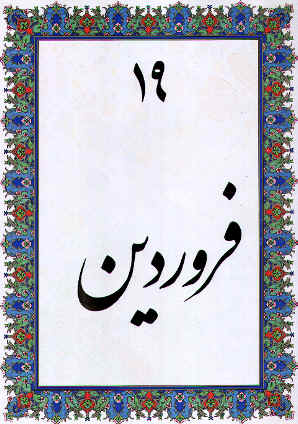 ۱۹
فروردین